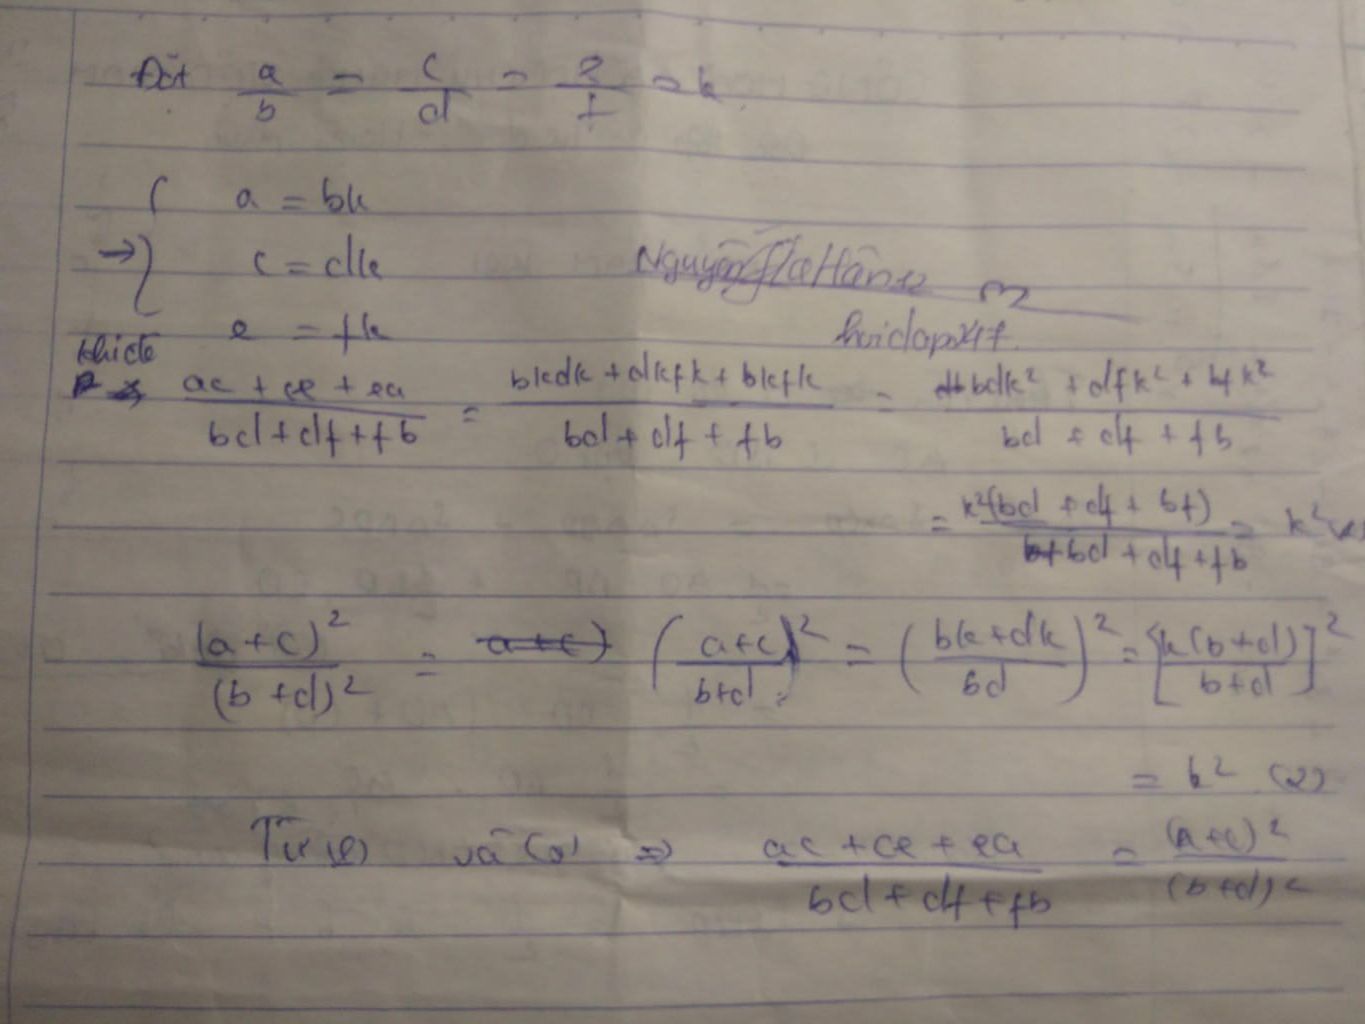 Đặt a/b = c/d = e/f = k
a = bk
→ { c = dk
e = fk
Nguyễn
hoidap247
khi đó
(ac + ce + ea)/(bd + df + fb) = (bkdk + dkfk + bkfk)/(bd + df + fb) = (bdk² + dfk² + bfk²)/(bd + df + fb)
= k²(bd + df + bf)/(bd + df + fb) = k² (1)
(a+c)²/(b+d)² = ((a+c)/(b+d))² = ((bk+dk)/bd)² = [k(b+d)/(b+d)]²
= k² (2)
Từ (1) và (2) => (ac + ce + ea)/(bd + df + fb) = (a+c)²/(b+d)²